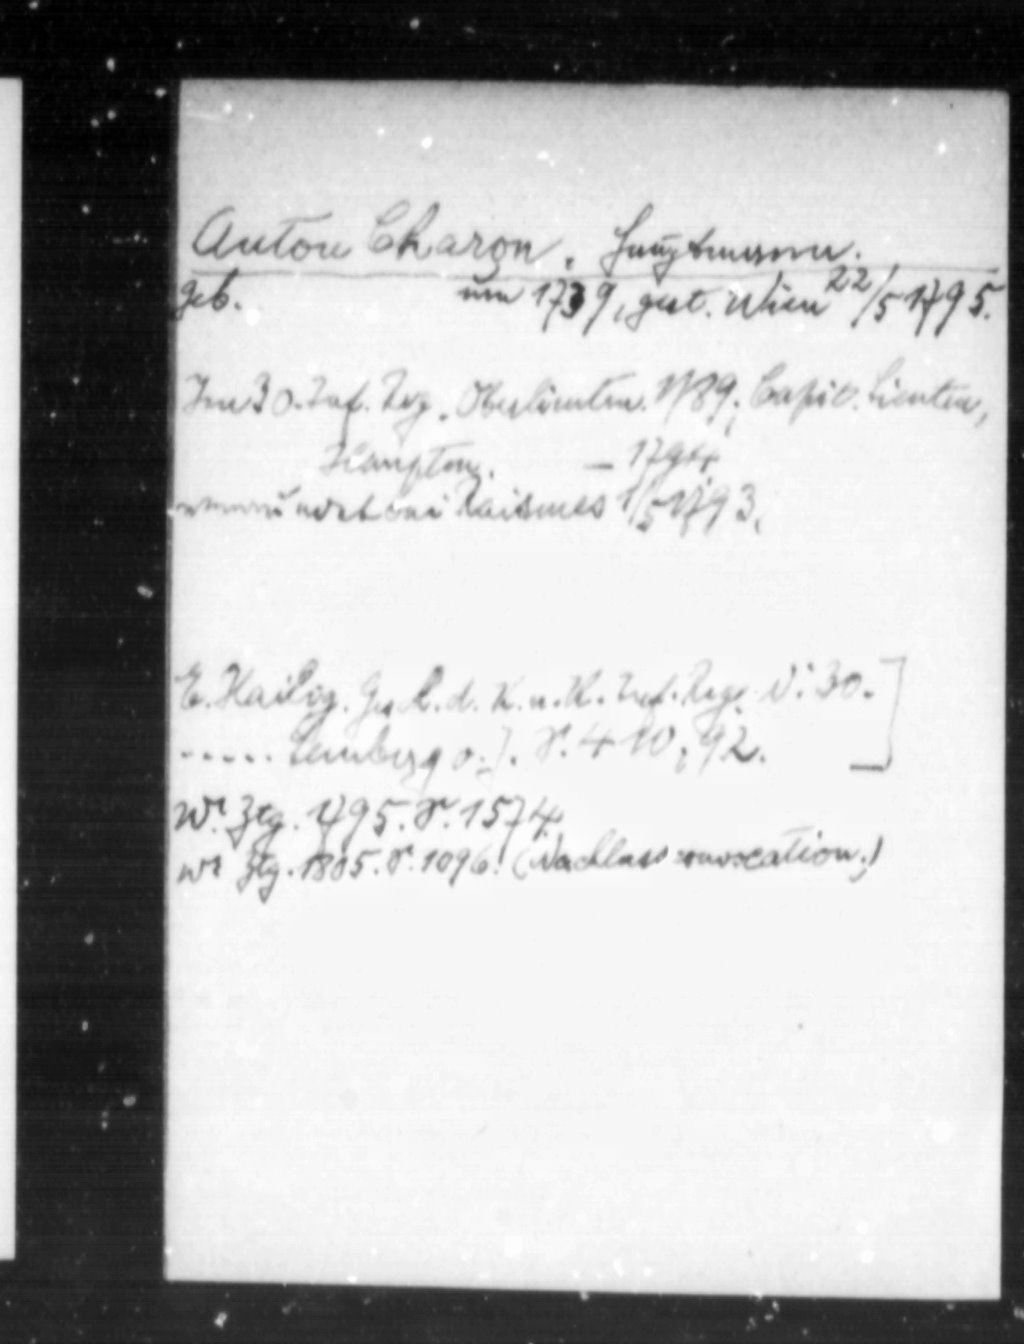 Anton Charon. Hauptmann.
geb. um 1739, gest. Wien 22/5 1795.
Im 30. Inf. Reg. Oberlieutn. 1789, Capit. Lieutn,
Hauptm. – 1794
verwundet bei Raismes 1/5 1793.
E. Hailig. Gesch. d. K. u. K. Inf. Rege. N: 30.
..... Lemberg o. J. S. 410, 92.
Wr. Ztg. 1795. S. 1574.
Wr Ztg. 1805. S. 1096. (Nachlass convocation.)